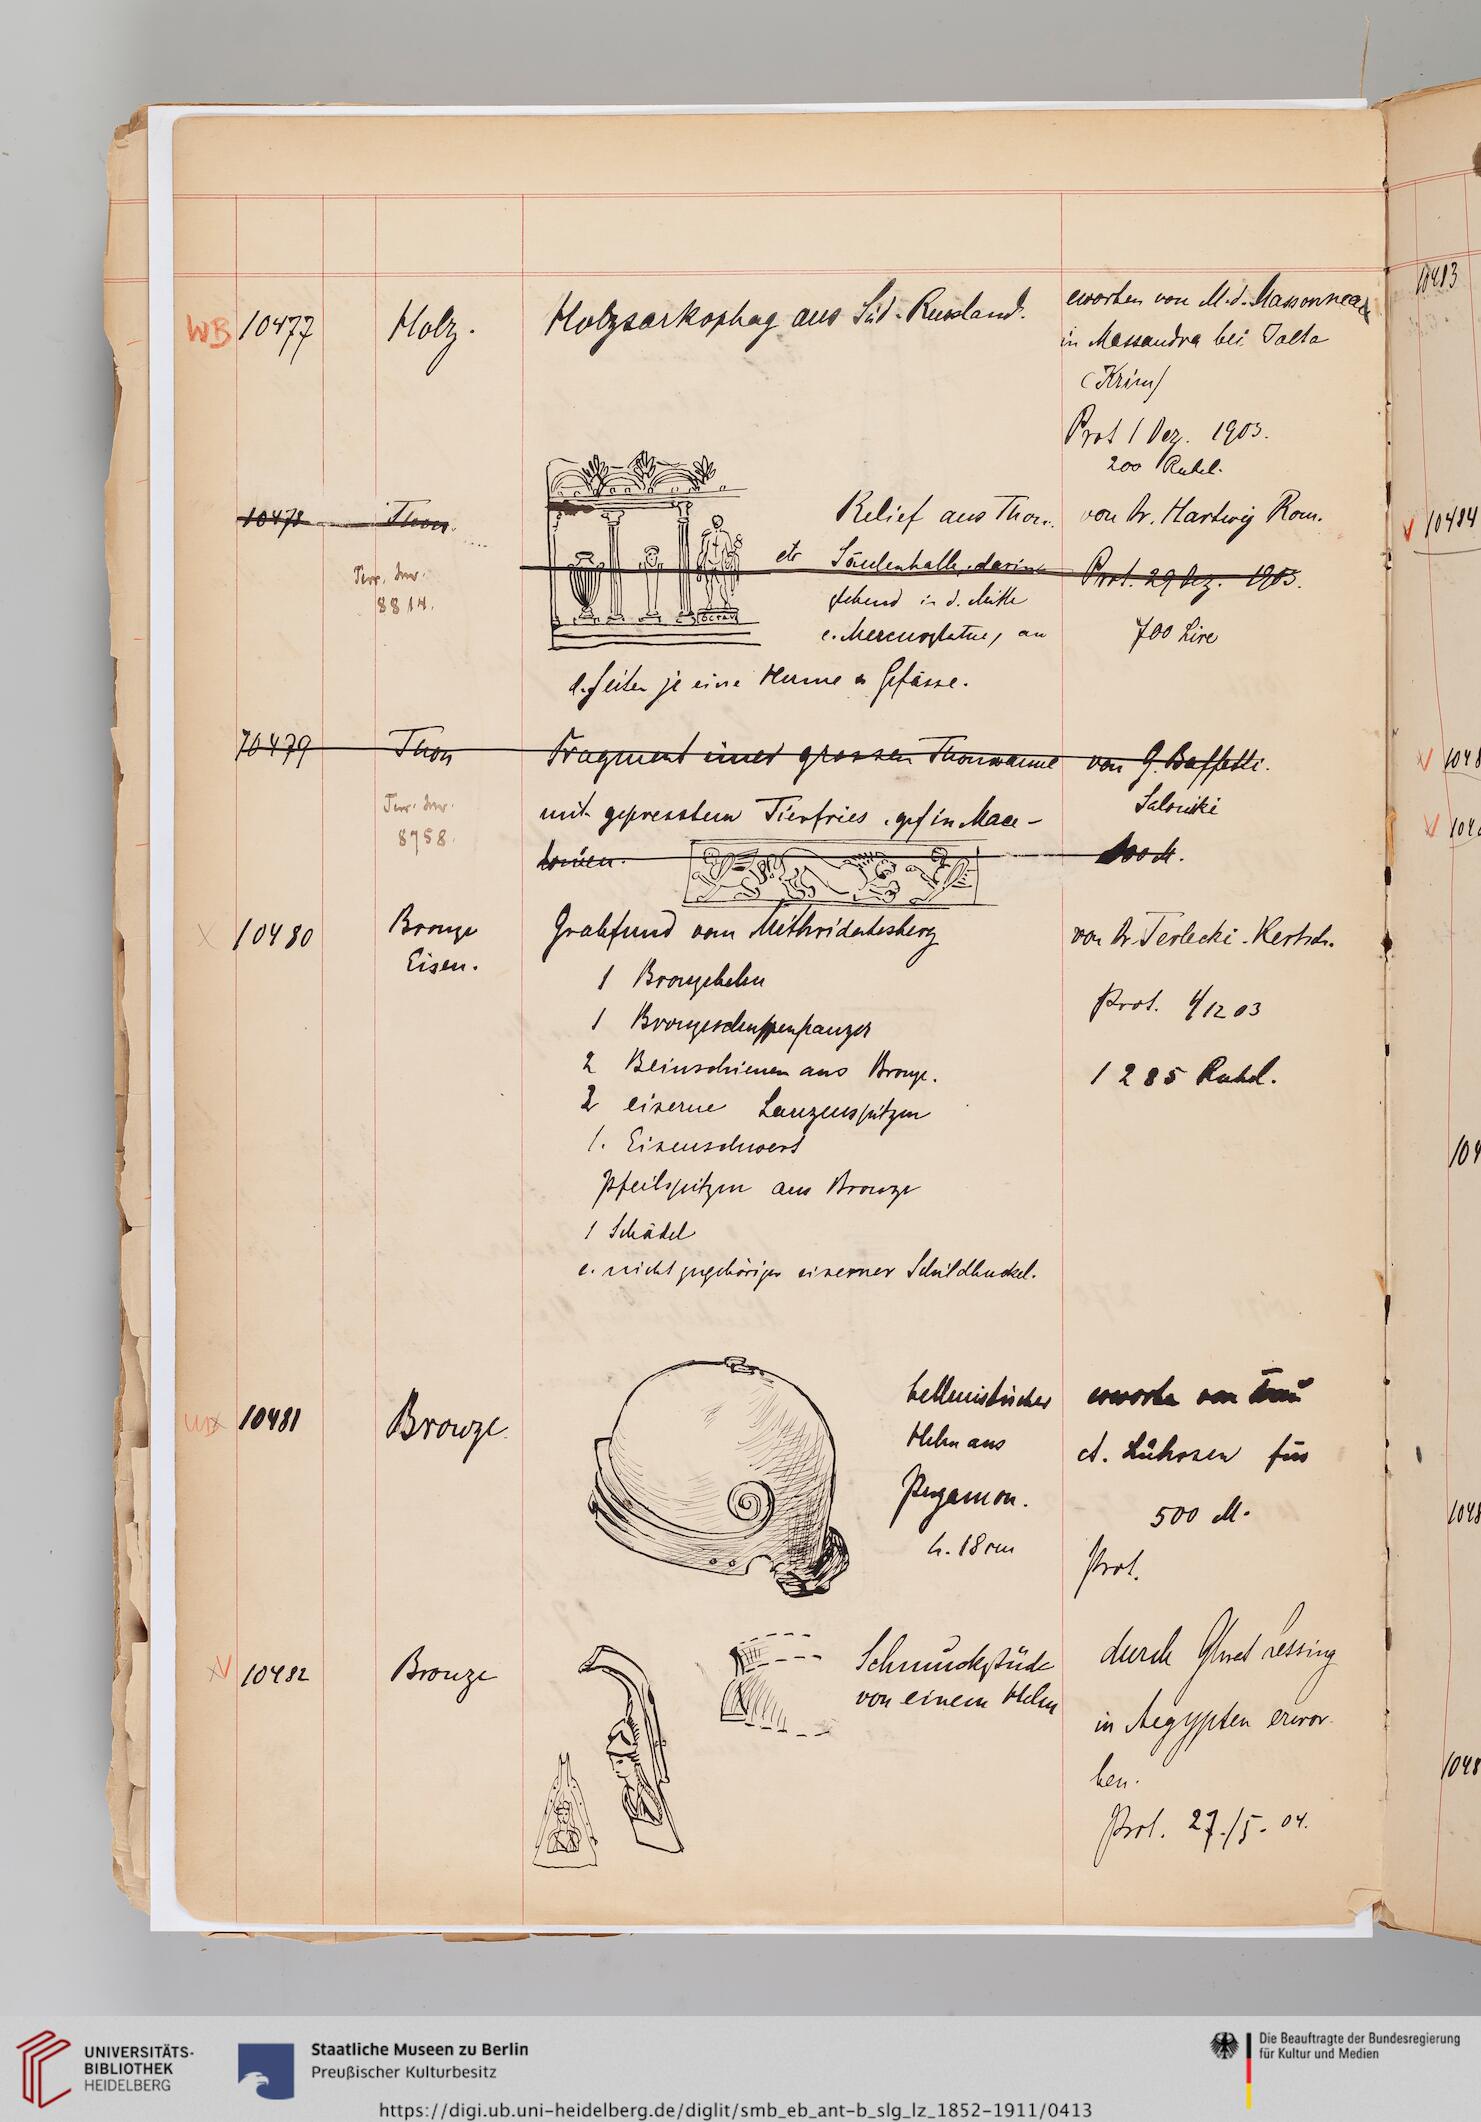 WB 10477 Holz. Holzsarkophag aus Süd-Russland. erworben von M. d. Massonneau
in Massandra bei Jalta
(Krim)
Prot 1 Dez. 1903.
200 Rubel.
10478 Thon. Relief aus Thon. von Dr. Hartwig Rom.
etc Säulenhalle, darin Prot. 29 Dez. 1903.
Terr. Inv.
8814.
stehend in d. Mitte
e. Mercurstatue, an 700 Lire
d. Seiten je eine Herme u Gefässe.
10479 Thon Fragment einer grossen Thonwanne von G. Baffetti.
Terr. Inv.
8758.
mit gepresstem Tierfries, gef in Mace- Saloniki
donien. 100 M.
X 10480 Bronze Grabfund vom Mithridatesberg von Dr. Terlecki-Kertsch.
Eisen.
1 Bronzehelm
1 Bronzeschuppenpanzer Prot. 4/12 03
2 Beinschienen aus Bronze. 1285 Rubel.
2 eiserne Lanzenspitzen
1. Eisenschwert
Pfeilspitzen aus Bronze
1 Schädel
e. nicht zugehöriger eiserner Schildbuckel.
10481 Bronze. hellenistischer erworben von
Helm aus Lührsen für
Pergamon. 500 M.
h. 18 cm Prot.
10482 Bronze Schmuckstücke durch Lessing
von einem Helm in Aegypten erwor-
ben.
Prot. 27./5. 04.
10483
10484
1048
104
1048
1048
UNIVERSITÄTS-
BIBLIOTHEK
HEIDELBERG
Staatliche Museen zu Berlin
Preußischer Kulturbesitz
Die Beauftragte der Bundesregierung
für Kultur und Medien
https://digi.ub.uni-heidelberg.de/diglit/smb_eb_ant-b_slg_lz_1852-1911/0413